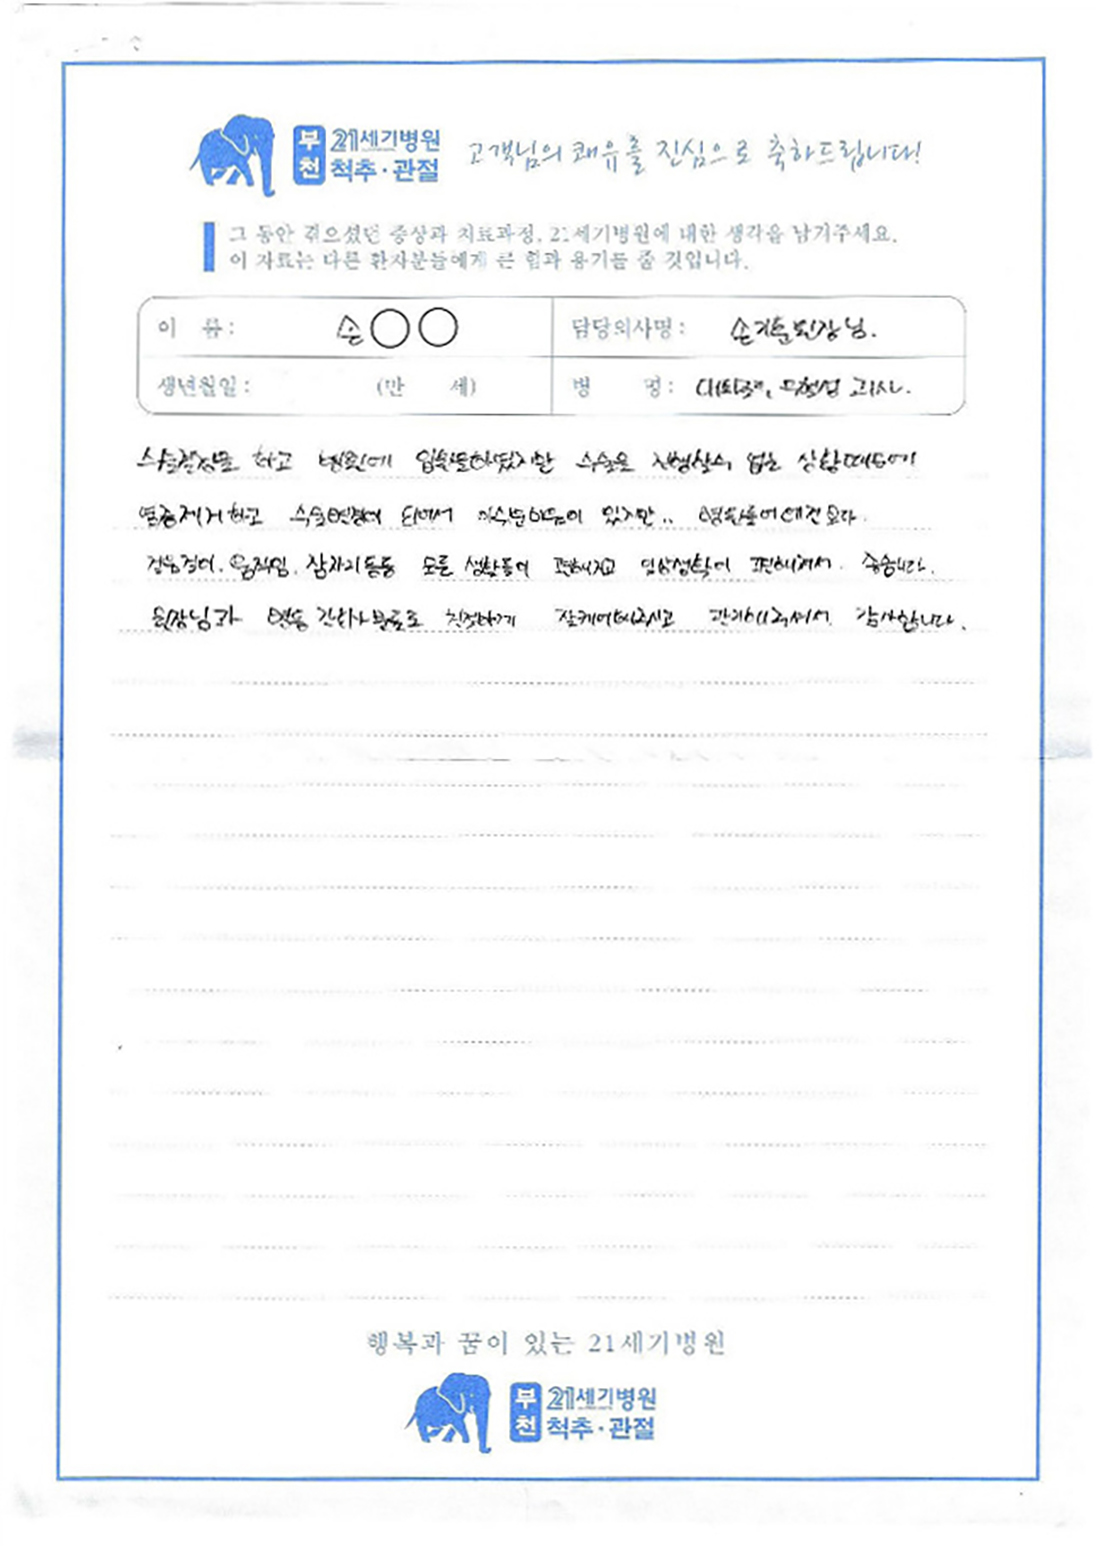 부천 21세기병원 척추·관절 고객님의 쾌유를 진심으로 축하드립니다!
그 동안 겪으셨던 증상과 치료과정, 21세기병원에 대한 생각을 남겨주세요.
이 자료는 다른 환자분들에게 큰 힘과 용기를 줄 것입니다.
이 름 : 손○○ 담당의사명 : 손기훈원장님.
생년월일 : (만 세) 병 명 : 대퇴골, 무혈성 괴사.
수술결정을 하고 병원에 입원을하였지만 수술을 진행할수 없는 상황때문에
염증제거하고 수술연결이 되어서 아쉬운마음이 있지만..
걸음걸이. 움직임. 잠자리등등 모든 생활들이 편해지고 일상생활이 편해져서. 좋습니다.
원장님과 병동 간호사분들도 친절하게 잘케어해주시고 관리해주셔서. 감사합니다.
행복과 꿈이 있는 21세기병원
부천 21세기병원 척추·관절